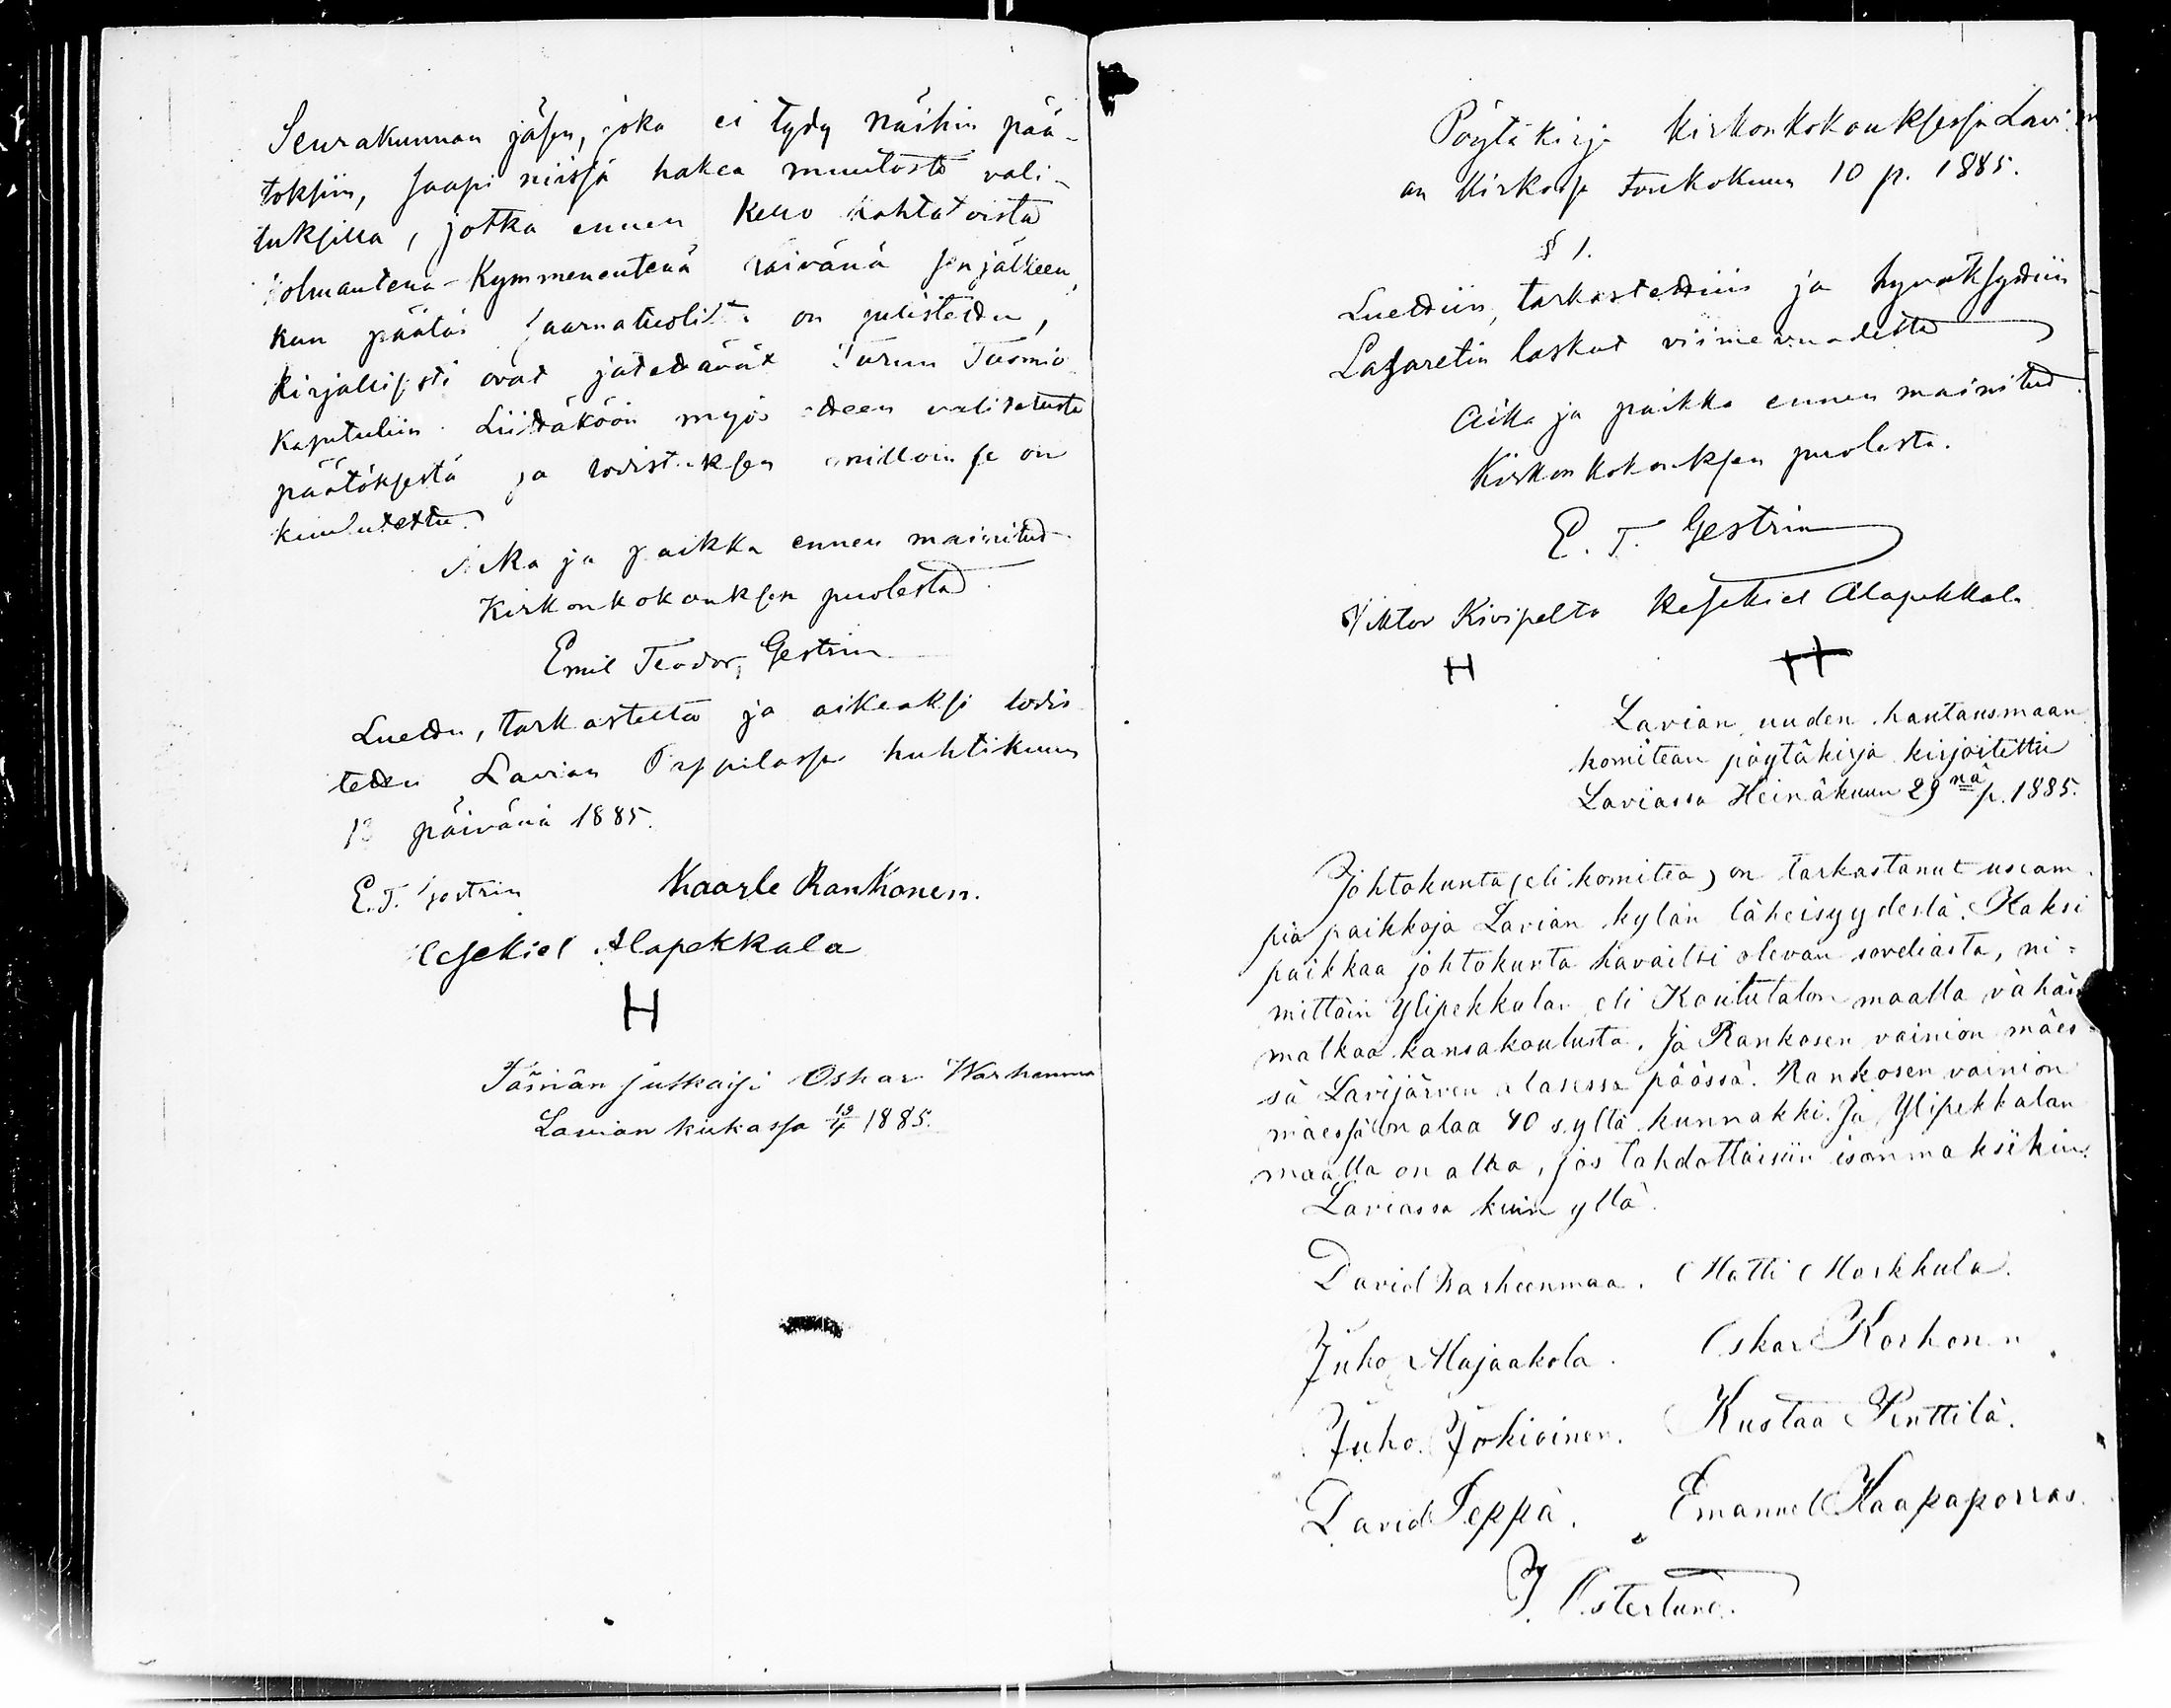 Seurakunnan jäsen, joka ei tydy näihin pää-
töksiin, saapi niissä hakea muutosta vali-
tuksilla, jotka ennen kello kahtatoista
kolmantena-kymmenentenä päivänä sen jälkeen,
kun päätös saarnatuolista on julistettu,
kirjallisesti ovat jätettävät Turun Tuomio
Kapituliin. Liittäköön myös valitetusta
päätöksestä ja todistuksen milloin se on
kuulutettu.
Aika ja paikka ennen mainitud.
Kirkonkokouksen puolesta
Emil Teodor Gestrin
Luettu, tarkastettu ja oikeaksi todis
tettu Lavian Pappilassa huhtikuun
13 päivänä 1885.
E. T. Gestrin Kaarle Rankonen.
Esekiel Alapekkala
H
Tämän julkaisi Oskar Warhenmaa
Lavian kirkossa 19/4 1885.
Pöytäkirja kirkonkokouksessa Lavi
an kirkossa Toukokuun 10 p. 1885.
§ 1.
Luettiin, tarkastettiin ja hyväksyttiin
Lasaretin laskut viime vuodelta
Aika ja paikka ennen mainitud.
Kirkonkokouksen puolesta.
E. T. Gestrin
Viktor Kivipelto Kesekiel Alapekkala
H
Lavian uuden hautausmaan
komitean pöytäkirja kirjoitettu
Laviassa Heinäkuun 29 nä p. 1885.
Johtokunta (eli komitea) on tarkastanut useam
pia paikkoja Lavian kylän läheisyydestä. Kaksi
paikkaa johtokunta havaitsi olevan soveliasta, ni=
mittäin Ylipekkalan eli Koulutalon maalla vähän
matkaa kansakoulusta. Ja Rankosen vainion mäes=
sä Lavijärven alasessa päässä. Rankosen vainion
mäessä on alaa 40 syltä kunnakki. Ja Ylipekkalan
maalla on alaa, jos tahdottaisiin isommaksikin.
Laviassa kuin yllä.
David Varheenmaa. Matti Markkula.
Juho Majaakola. Oskar Korhonen.
Juho Jokioinen. Kustaa Penttilä.
David Seppä. Emanuel Haapaporras.
J. Österlund.